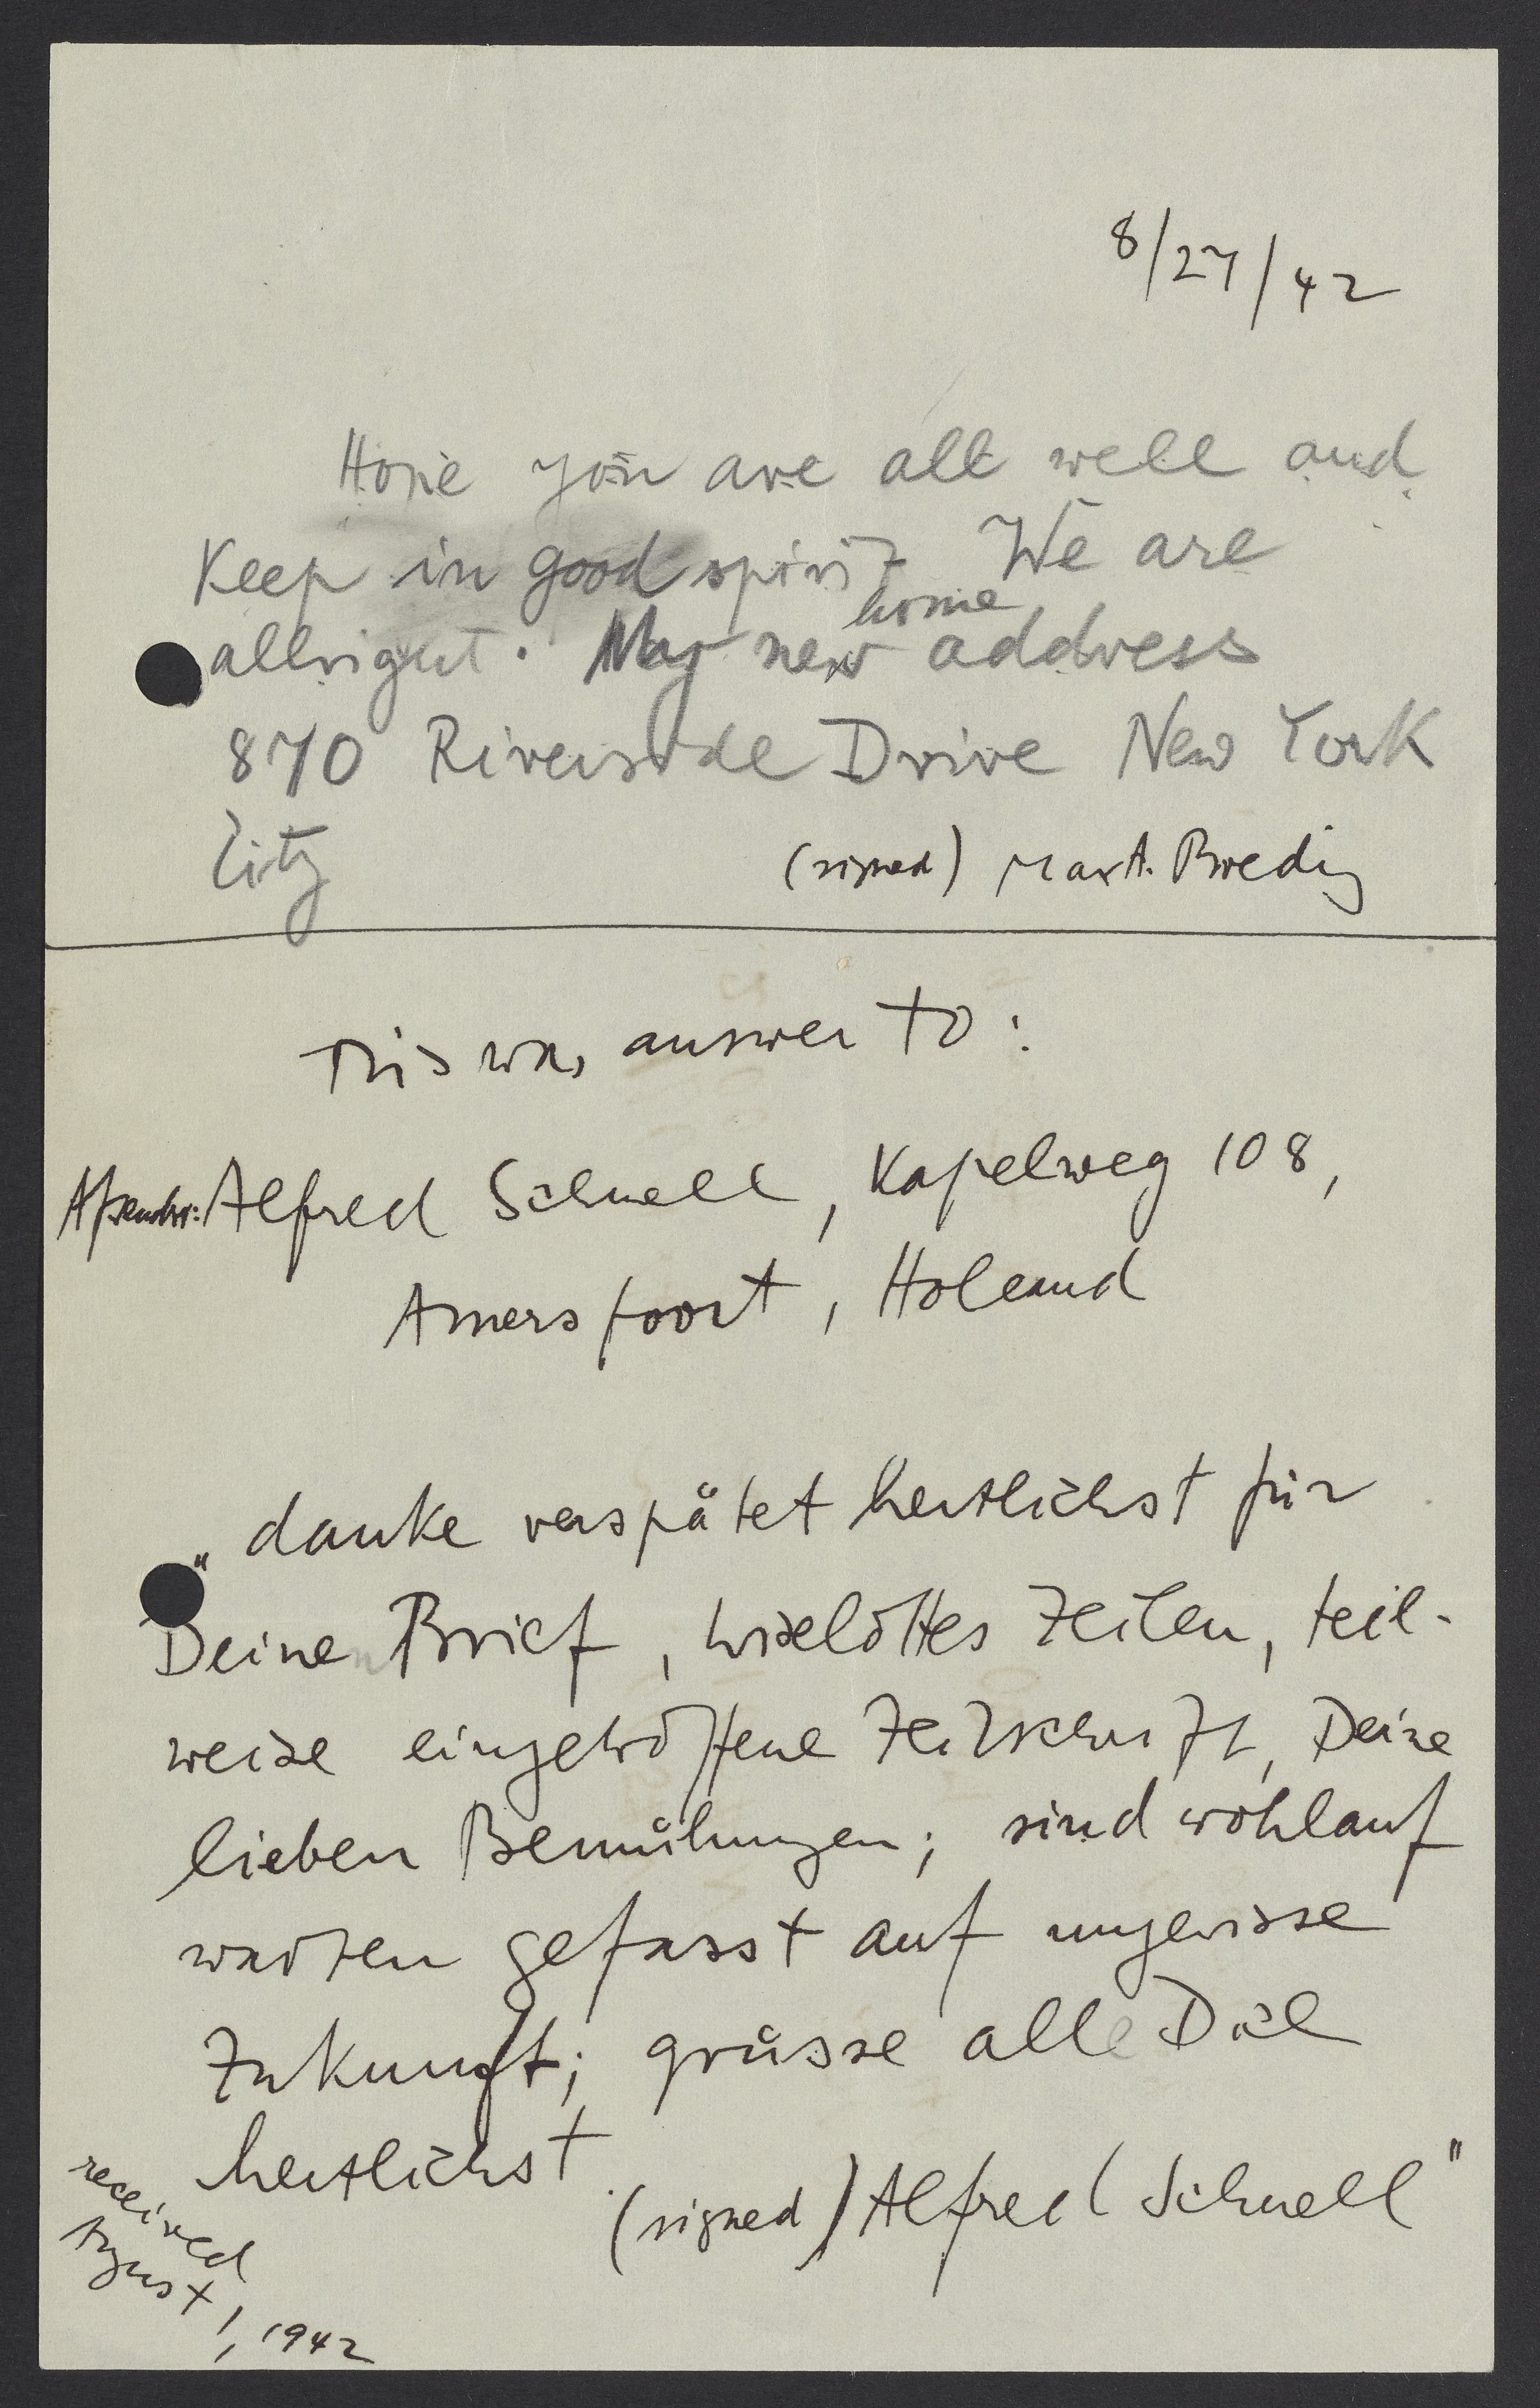 8/27/42
Hope you are all well and
Keep in good spirit We are
home
allright. My new address
870 Riverside Drive New York
City
(signed) Max A. Bredig
This was answer to:
Absender: Alfred Schnell, Kapelweg 108,
Amersfoort, Holland
"danke verspätet herzlichst für
Deinen Brief, Liselottes Zeilen, teil-
weise eingetroffene Zeitschrift, Deine
lieben Bemühungen; sind wohlauf
warten gefasst auf ungewisse
Zukunft; grüsse alle Dich
herzlichst.
(signed) Alfred Schnell"
received
August 1, 1942